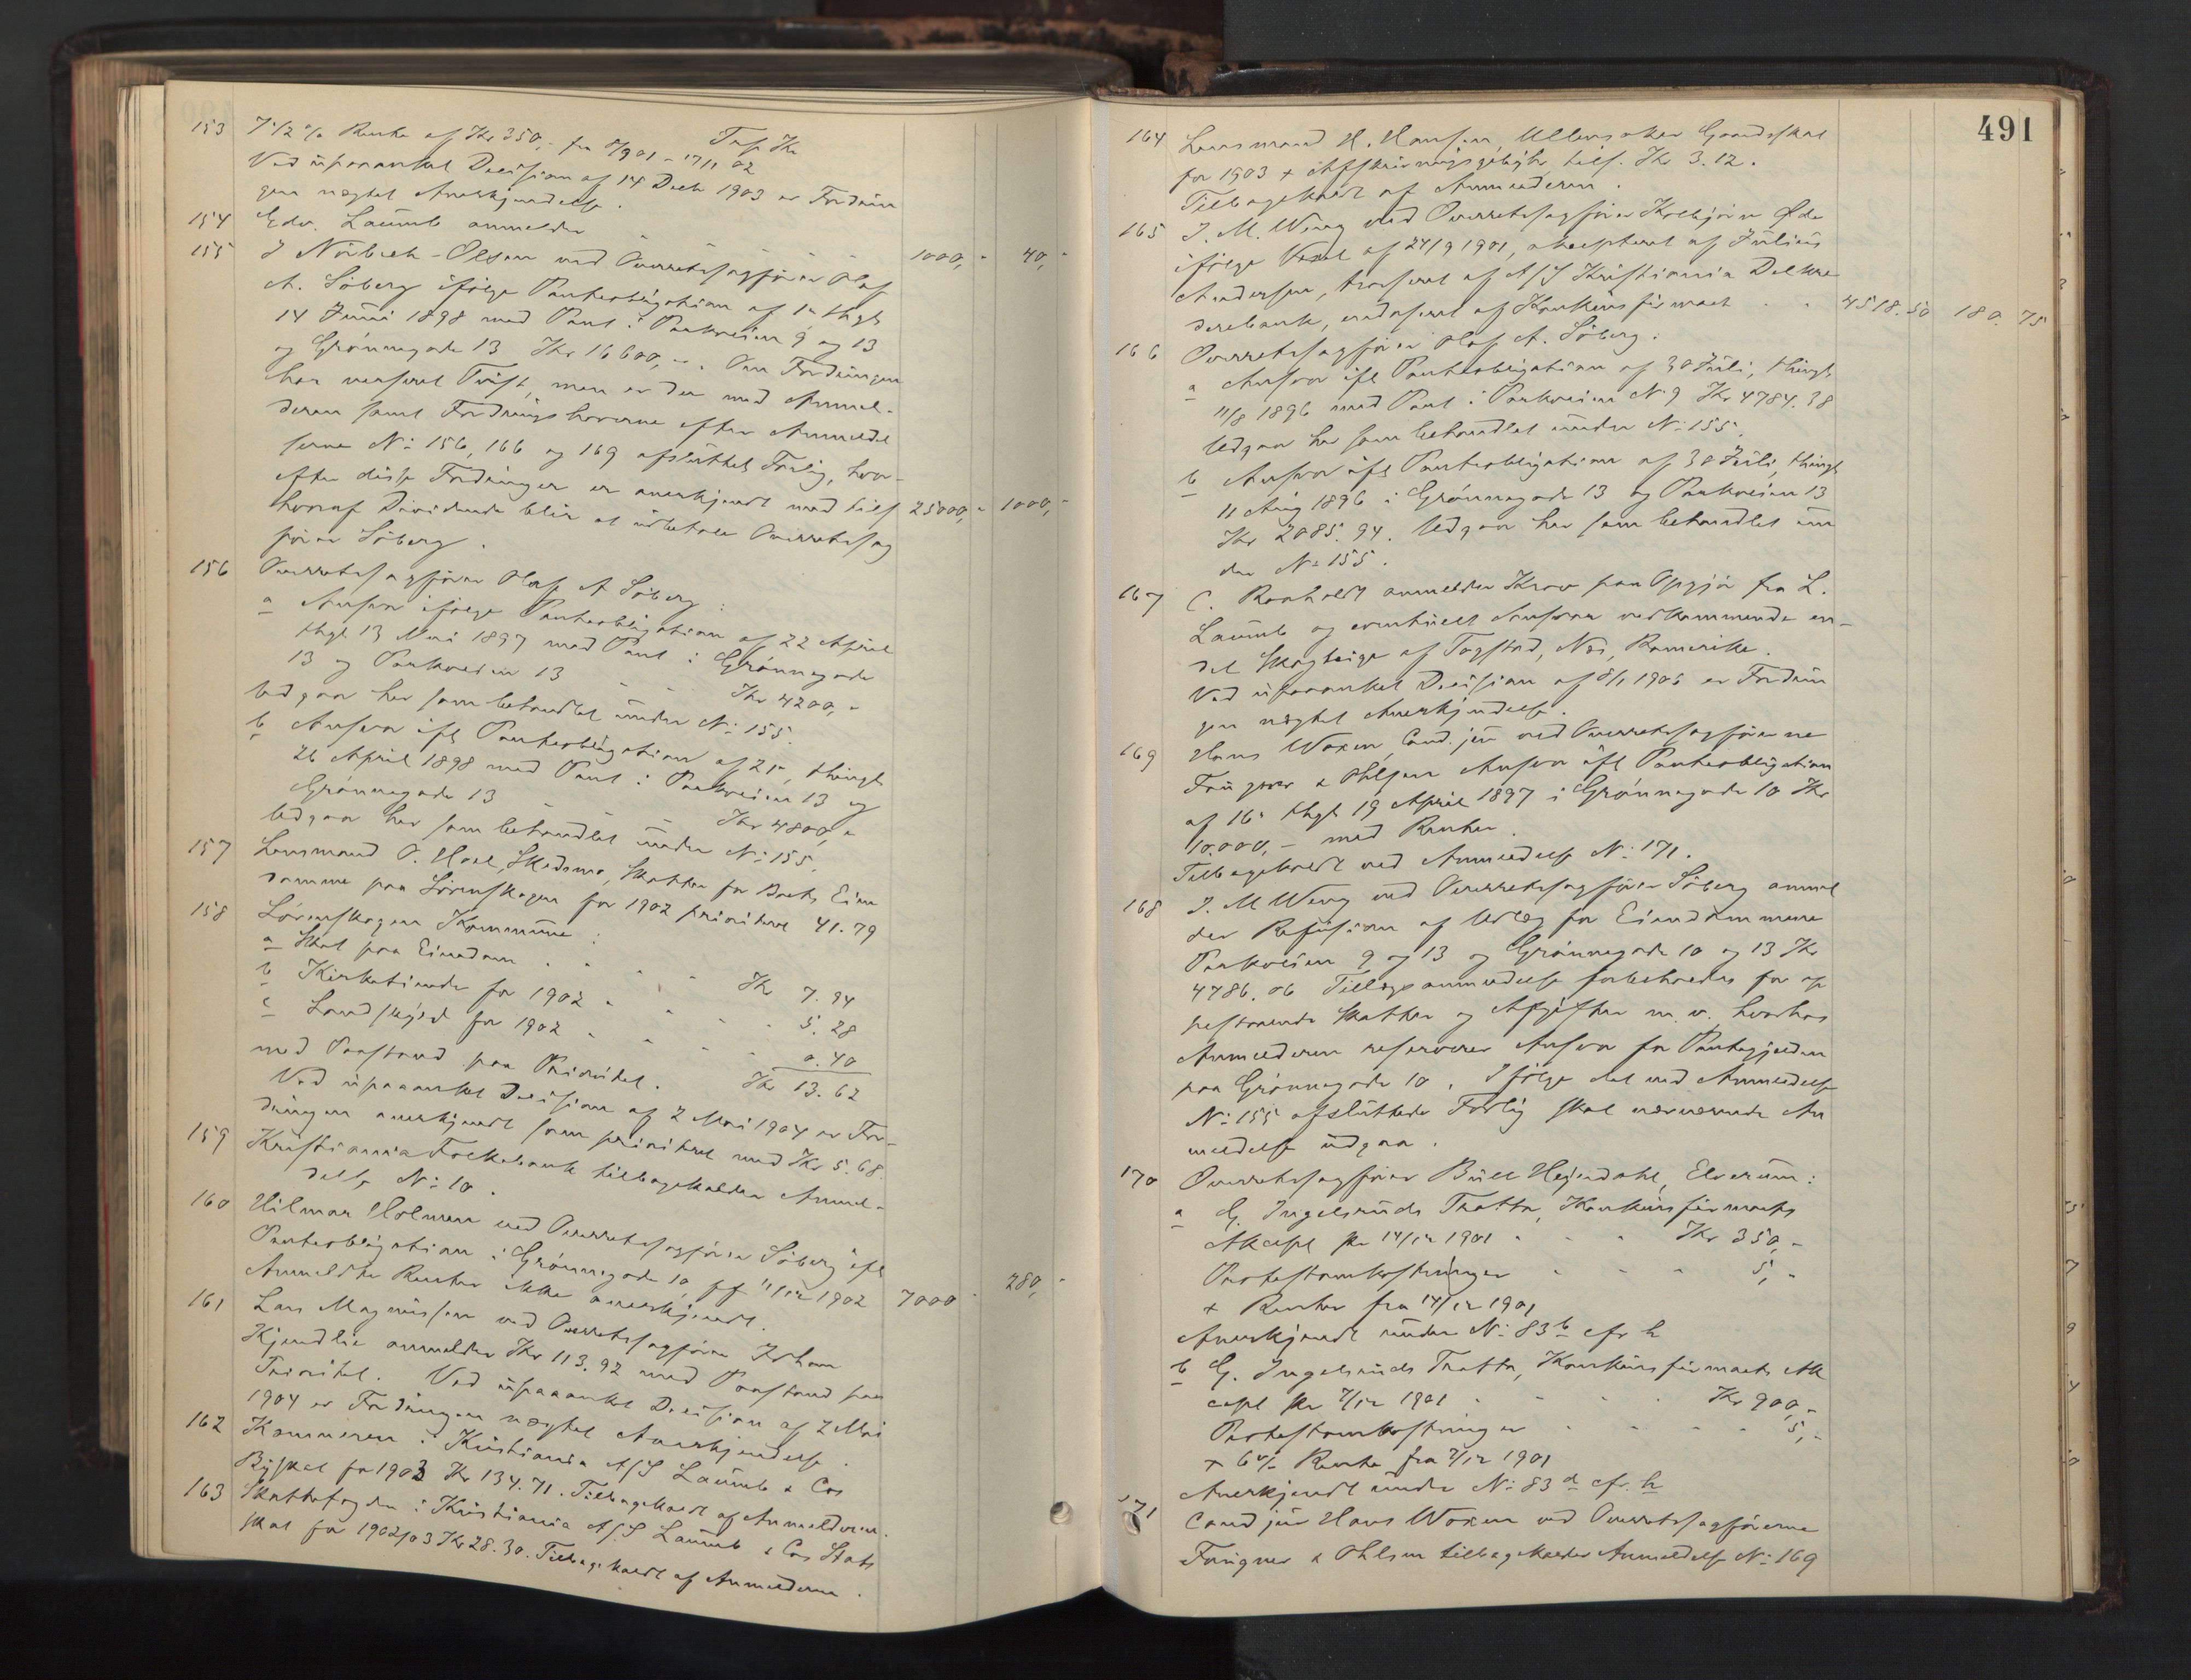 153 7 1/2 % Rente af Kr 350,- fra 1901 - 17/11 02 Tils. Kr
Ved upaaanket Decision af 14 Decbr 1903 er Fordrin
gen nægtet Anerkjendelse.
154 Edv. Laumb anmelder - - 1000,- 40,-
155 J Nörbech-Olsen ved Overretssagfører Olaf
A. Söberg ifölge Pantobligation af 1n thgl
14 Juni 1898 med Pant i Parkveien 9 og 13
og Grönnegade 13 Kr 16600,-. Om Fordringen
har verseret Tvist, men er der med Anmel-
deren samt Fordringshaverne efter Anmeldel
serne No 156, 166 og 169 afsluttet Forlig, hvor-
efter disse Fordringer er anerkjendt med tils 25000,- 1000,-
hvoraf Dividende blir at udbetale Overretssag
förer Söberg.
156 Overretssagfører Olaf A Söberg:
a Ansvar ifölge Pantobligation af 22 April
thgl 13 Mai 1897 med Pant i Grönnegade
13 og Parkveien 13 - - Kr 4200,-
Udgaar her som behandlet under No 155.
b Ansvar ifl Pantobligation af 21n, thingl
26 April 1898 med Pant i Parkveien 13 og
Grönnegade 13 - - Kr 4800,-
Udgaar her som behandlet under No 155.
157 Lensmand O. Hoel, Skedsmo, Skatter for Boets Eien
domme paa Lörenskogen for 1902 prioriteret 41.79
158 Lørenskogen Kommune:
a Skat paa Eiendom - - - Kr 7.94
b Kirketiende for 1902 - - - 5.28
c Landskyld for 1902 - - - 0.40
med Paastand paa Prioritet. Kr 13.62
Ved upaaanket Decision af 2 Mai 1904 er For-
dringen anerkjendt som prioriteret med Kr 5.68.
159 Kristiania Folkebank tilbagekalder Anmel-
delse No 10.
160 Hilmar Holmsen ved Overretssagfører Söberg ifl
Pantobligation i Grönnegade 10, pf 11/12 1902 7000 - 280,-
Anmeldte Renter ikke anerkjendt.
161 Lars Magnussen ved Overretssagfører Johan
Kjendlie anmelder Kr 113.92 med Paastand paa
Prioritet. Ved upaaanket Decision af 2 Mai
1904 er Fordringen nægtet Anerkjendelse.
162 Kæmneren i Kristiania A/S Laumb & Cos
Byskat for 1903 Kr 134.71. Tilbagekaldt af Anmelderen.
163 Skattefogden i Kristiania A/S Laumb & Cos Stats
skat for 1902/03 Kr 28.30. Tilbagekaldt af Anmelderen.
491
164 Lensmand H. Hansen, Ullensaker Grundskat
for 1903 + Afskrivningsgebyhr tils. Kr 3.12.
Tilbagekaldt af Anmelderen.
165 J. M. Weng ved Overretssagfører Thorbjørn Øde
ifölge Vexel af 24/9 1901, accepteret af Julius
Andersen, trasseret af A/S Kristiania Delkre
derebank, endosseret af Konkursfirmaet - - 4518.50 180.75
166 Overretssagfører Olaf A. Söberg:
a Ansvar ifl Pantobligation af 30 Juli, thingl
11/8 1896 med Pant i Parkveien No 9 Kr 4784.38
Udgaar her som behandlet under No 155.
b Ansvar ifl Pantobligation af 30 Juli, thingl
11 Aug 1896 i Grönnegade 13 og Parkveien 13
Kr 2085.94. Udgaar her som behandlet un
der No 155.
167 C. Ronholdt anmelder Krav paa Opgjör fra L.
Laumb og eventuelt Ansvar vedkommende en-
del Skogteige af Togstad, Nes, Romerike.
Ved upaaanket Decision af 8/1 1906 er Fordrin
gen nægtet Anerkjendelse.
169 Hans Woxen, Cand. jur ved Overretssagførerne
Fougner & Ohlsen Ansvar ifl Pantobligation
af 16n thgl 19 April 1897 i Grönnegade 10 Kr
10.000,- med Renter.
Tilbagekaldt ved Anmeldelse No 171.
168 J. M Weng ved Overretssagfører Söberg anmel
der Refusion af Udlæg for Eiendommene
Parkveien 9 og 13 og Grönnegade 10 og 13 Kr
4786.06 Tillægsanmeldelse forbeholdes for op
restaaende Skatter og Afgifter m. v. hvorhos
Anmelderen reserverer Ansvar for Pantegjelden
paa Grönnegade 10. Ifölge det ved Anmeldelse
No 155 afsluttede Forlig skal nærværende An
meldelse udgaa.
170 Overretssagfører Bull Hejerdahl, Elverum:
a G. Ingelsruds Tratta, Konkursfirmaets
Akcept pr 14/12 1901 - - - Kr 350,-
Protestomkostninger - - - 5,-
+ Renter fra 14/12 1901
Anerkjendt under No 83b cfr h
b G. Ingelsruds Tratta, Konkursfirmaets Ak
cept pr 7/12 1901 - - - Kr 900,-
Protestomkostninger - - - 5,-
+ 6 % Rente fra 7/12 1901
Anerkjendt under No 83d cfr. h
171 Cand jur Hans Woxen ved Overretssagførerne
Fougner & Ohlsen tilbagekalder Anmeldelse No 169